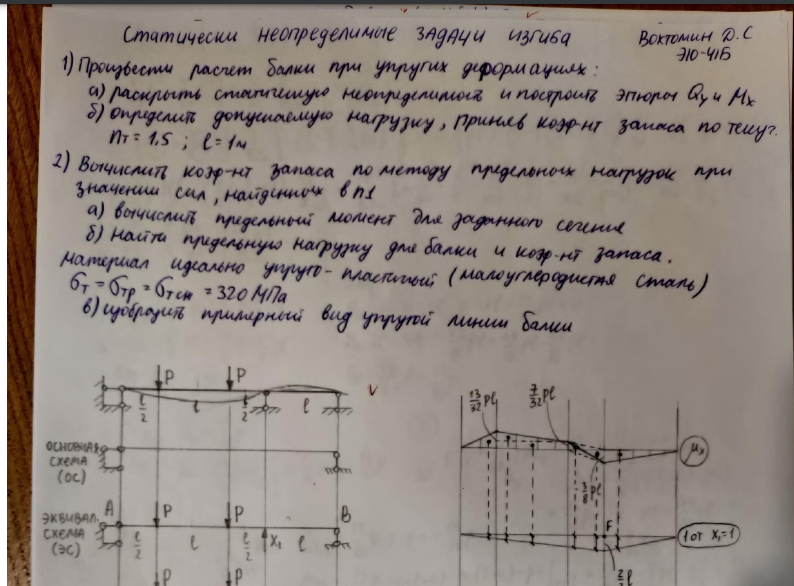 СТАТИЧЕСКИ НЕОПРЕДЕЛИМЫЕ ЗАДАЧИ ИЗГИБА
Вохтомин Д.С
Э10-41Б
1) Произвести расчет балки при упругих деформациях:
а) раскрыть статическую неопределимость и построить эпюры Qy и Mx
б) определить допускаемую нагрузку, приняв коэф-нт запаса по текуч.
nт = 1.5 ; l = 1м
2) Вычислить коэф-нт запаса по методу предельных нагрузок при
значении сил, найденных в п1
а) вычислить предельный момент для заданного сечения
б) найти предельную нагрузку для балки и коэф-нт запаса.
материал идеально упруго-пластичный (малоуглеродистая сталь)
σт = σтр = σтсж = 320 МПа
в) изобразить примерный вид упругой линии балки
P P
l/2 l l/2 l
13/32 Pl 7/32 Pl
ОСНОВНАЯ
СХЕМА
(ОС)
Mx
3/8 Pl
ЭКВИВАЛ.
СХЕМА
(ЭС)
A P P B
l/2 l l/2 X1 l
F
1 от X1=1
P P